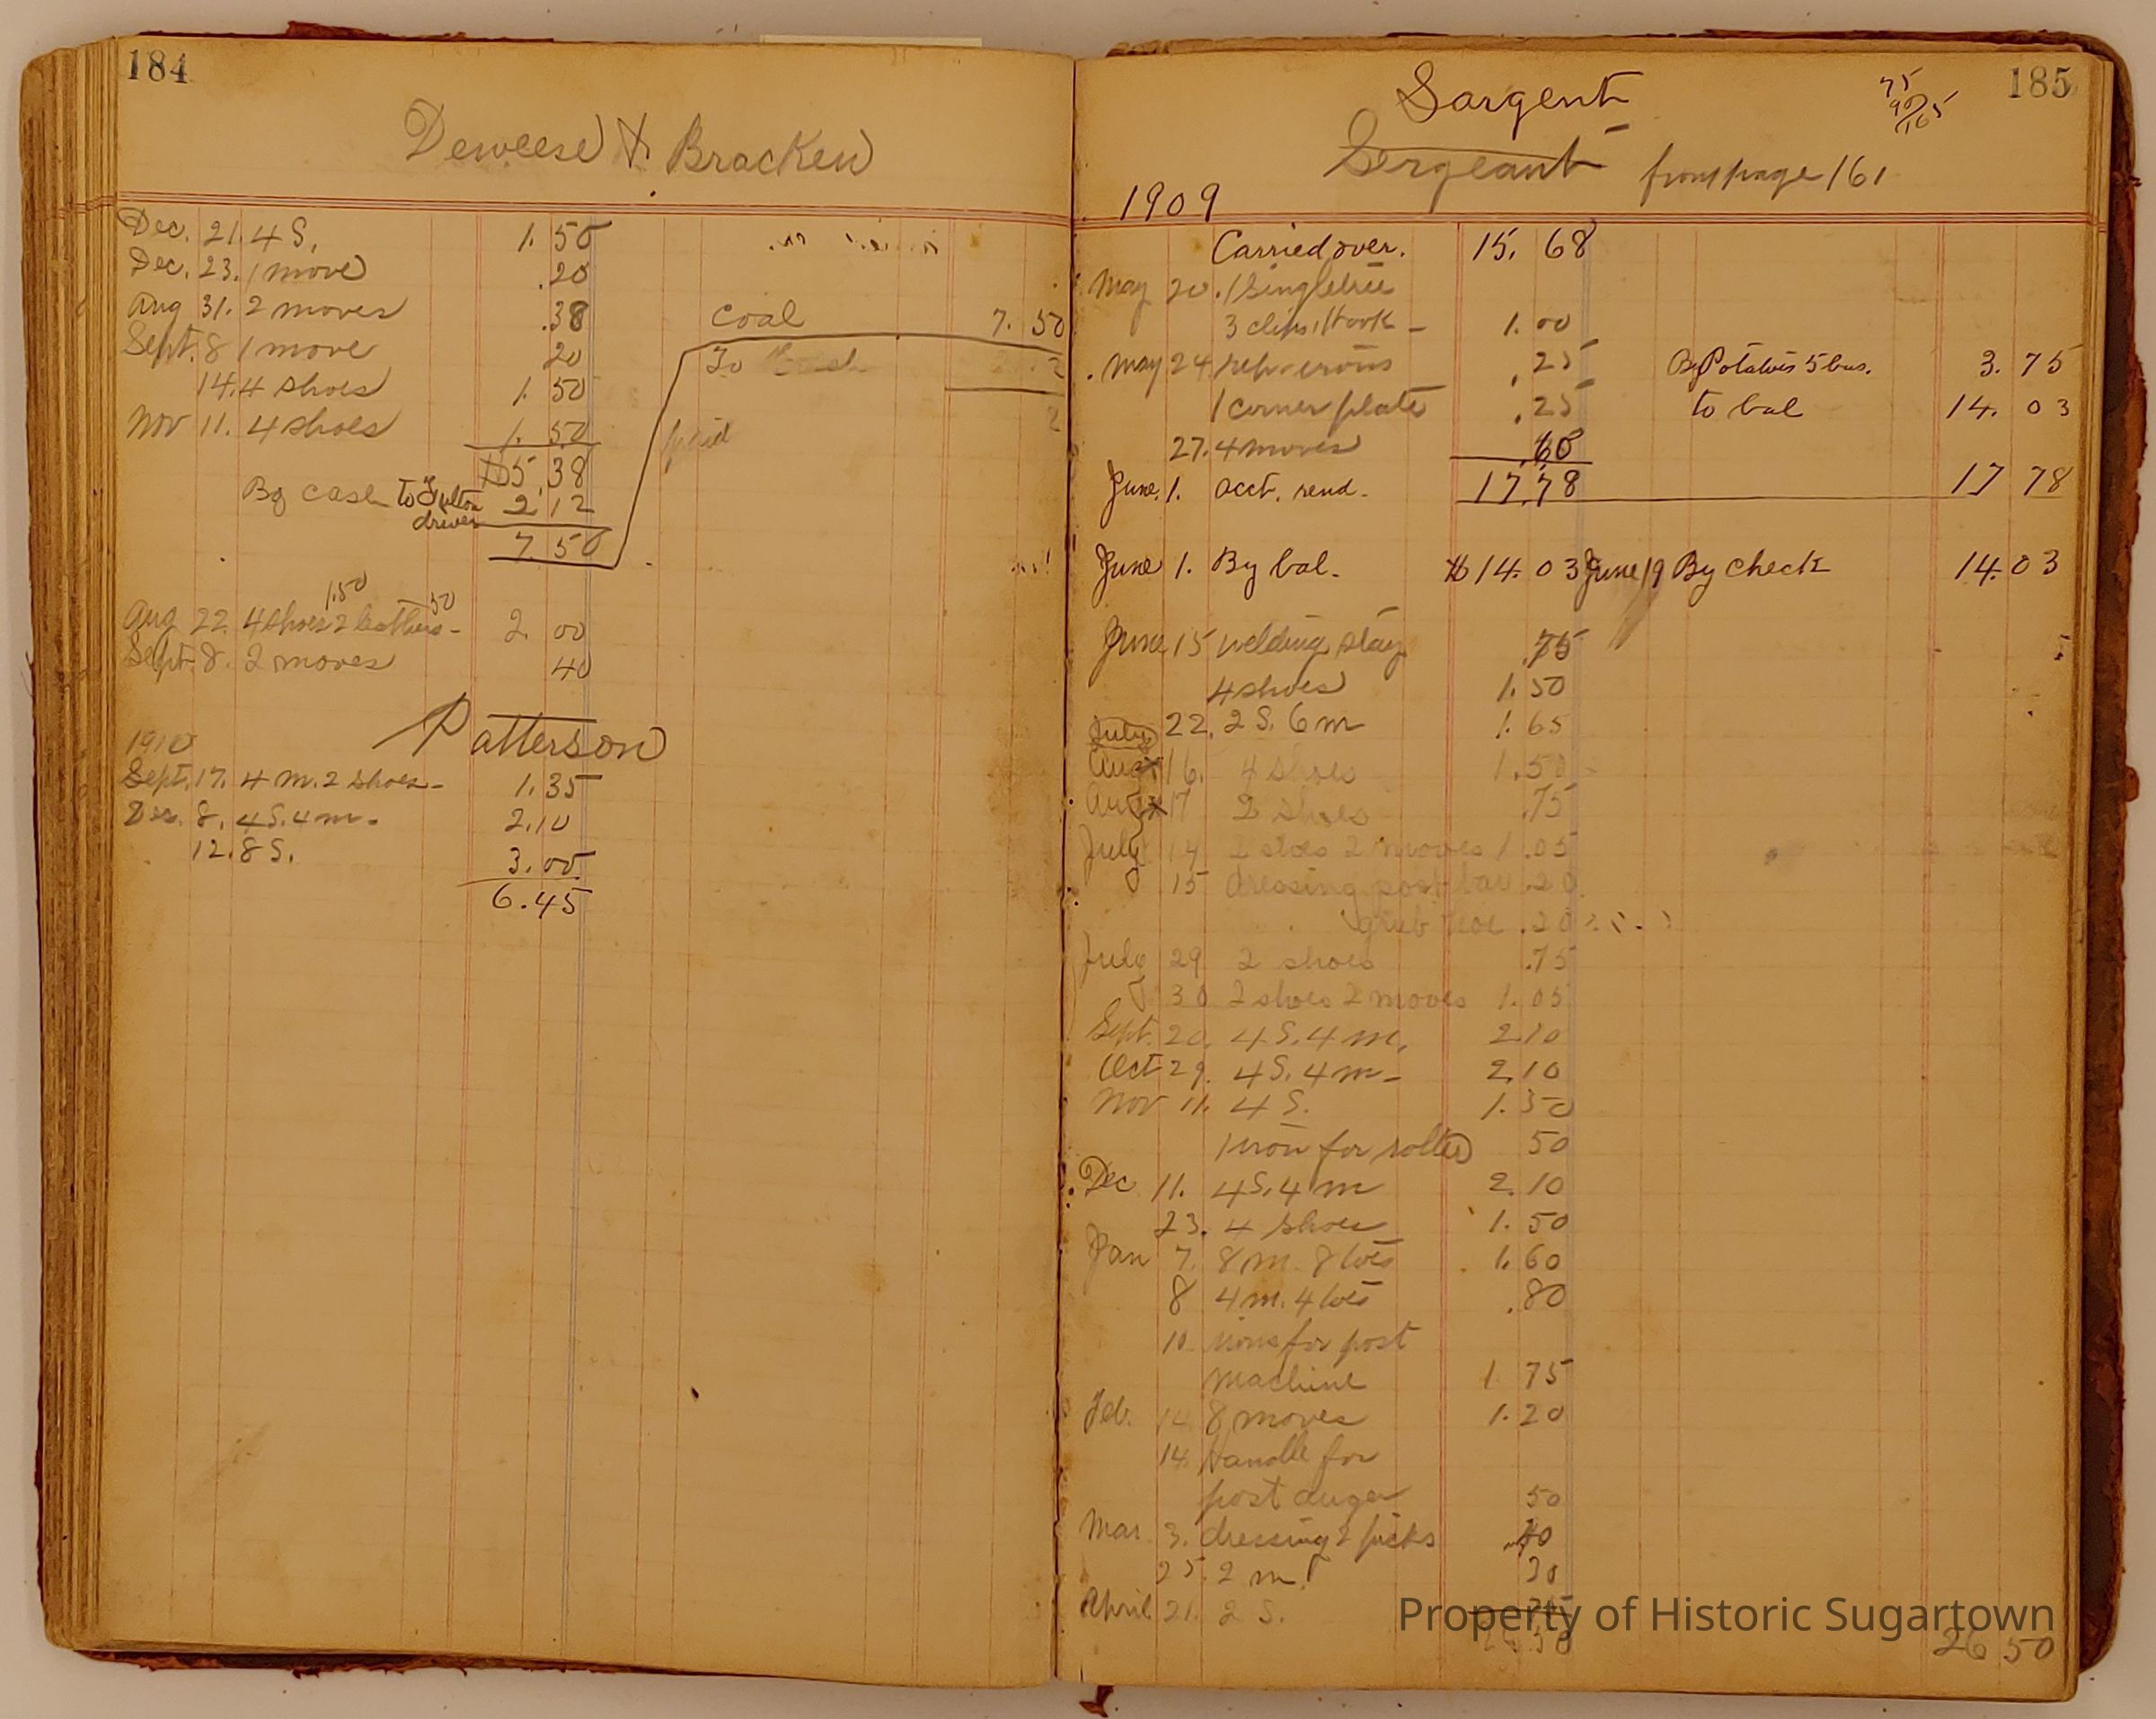 184
Deweese & Bracken
Dec. 21. 4 S. 1.50
Dec. 23. 1 move .20
Aug 31. 2 moves .38
Sept. 8 1 move 20
14. 4 shoes 1.50
Nov 11. 4 shoes 1.50
5.38
By cash to Fulton driver 2 12
7.50
Coal 7.50
To
paid
1.50 50
Aug 22. 4 shoes 2 leathers - 2.00
Sept. 8. 2 moves 40
Patterson
1910
Sept. 17. 4 m. 2 shoes - 1.35
Dec. 8. 4 S. 4 m. 2.10
12. 8 S. 3.00
6.45
185
Sargent
75
Sergeant from page 161
1909
Carried over. 15.68
May 20. 1 Singletree
3 clips 1 Hook - 1.00
May 24 rep. irons .25 By Potatoes 5 bus. 3.75
1 corner plate .25 to bal 14.03
27. 4 moves .60
June 1. acct. rend. 17.78 17 78
June 1. By bal. 14.03 June 19 By Check 14.03
June 15 welding stay .75
4 shoes 1.50
July 22. 2 S. 6 m 1.65
Aug 16. 4 shoes 1.50
Aug 17 2 shoes .75
July 14 2 shoes 2 moves 1.05
15 dressing post bar .20
grub hoe .20
July 29 2 shoes .75
30 2 shoes 2 moves 1.05
Sept. 20. 4 S. 4 m. 2.10
Oct 29. 4 S. 4 m - 2.10
Nov 11. 4 S. 1.50
1 iron for roller 50
Dec 11. 4 S. 4 m 2.10
23. 4 shoes 1.50
Jan 7. 8 m. 8 toes 1.60
8 4 m. 4 toes .80
10 irons for post
machine 1 75
Feb. 14 8 moves 1.20
14. Handle for
post auger 50
Mar. 3. dressing 2 picks 40
25. 2 m. 30
April 21. 2 S.
26 50
Property of Historic Sugartown